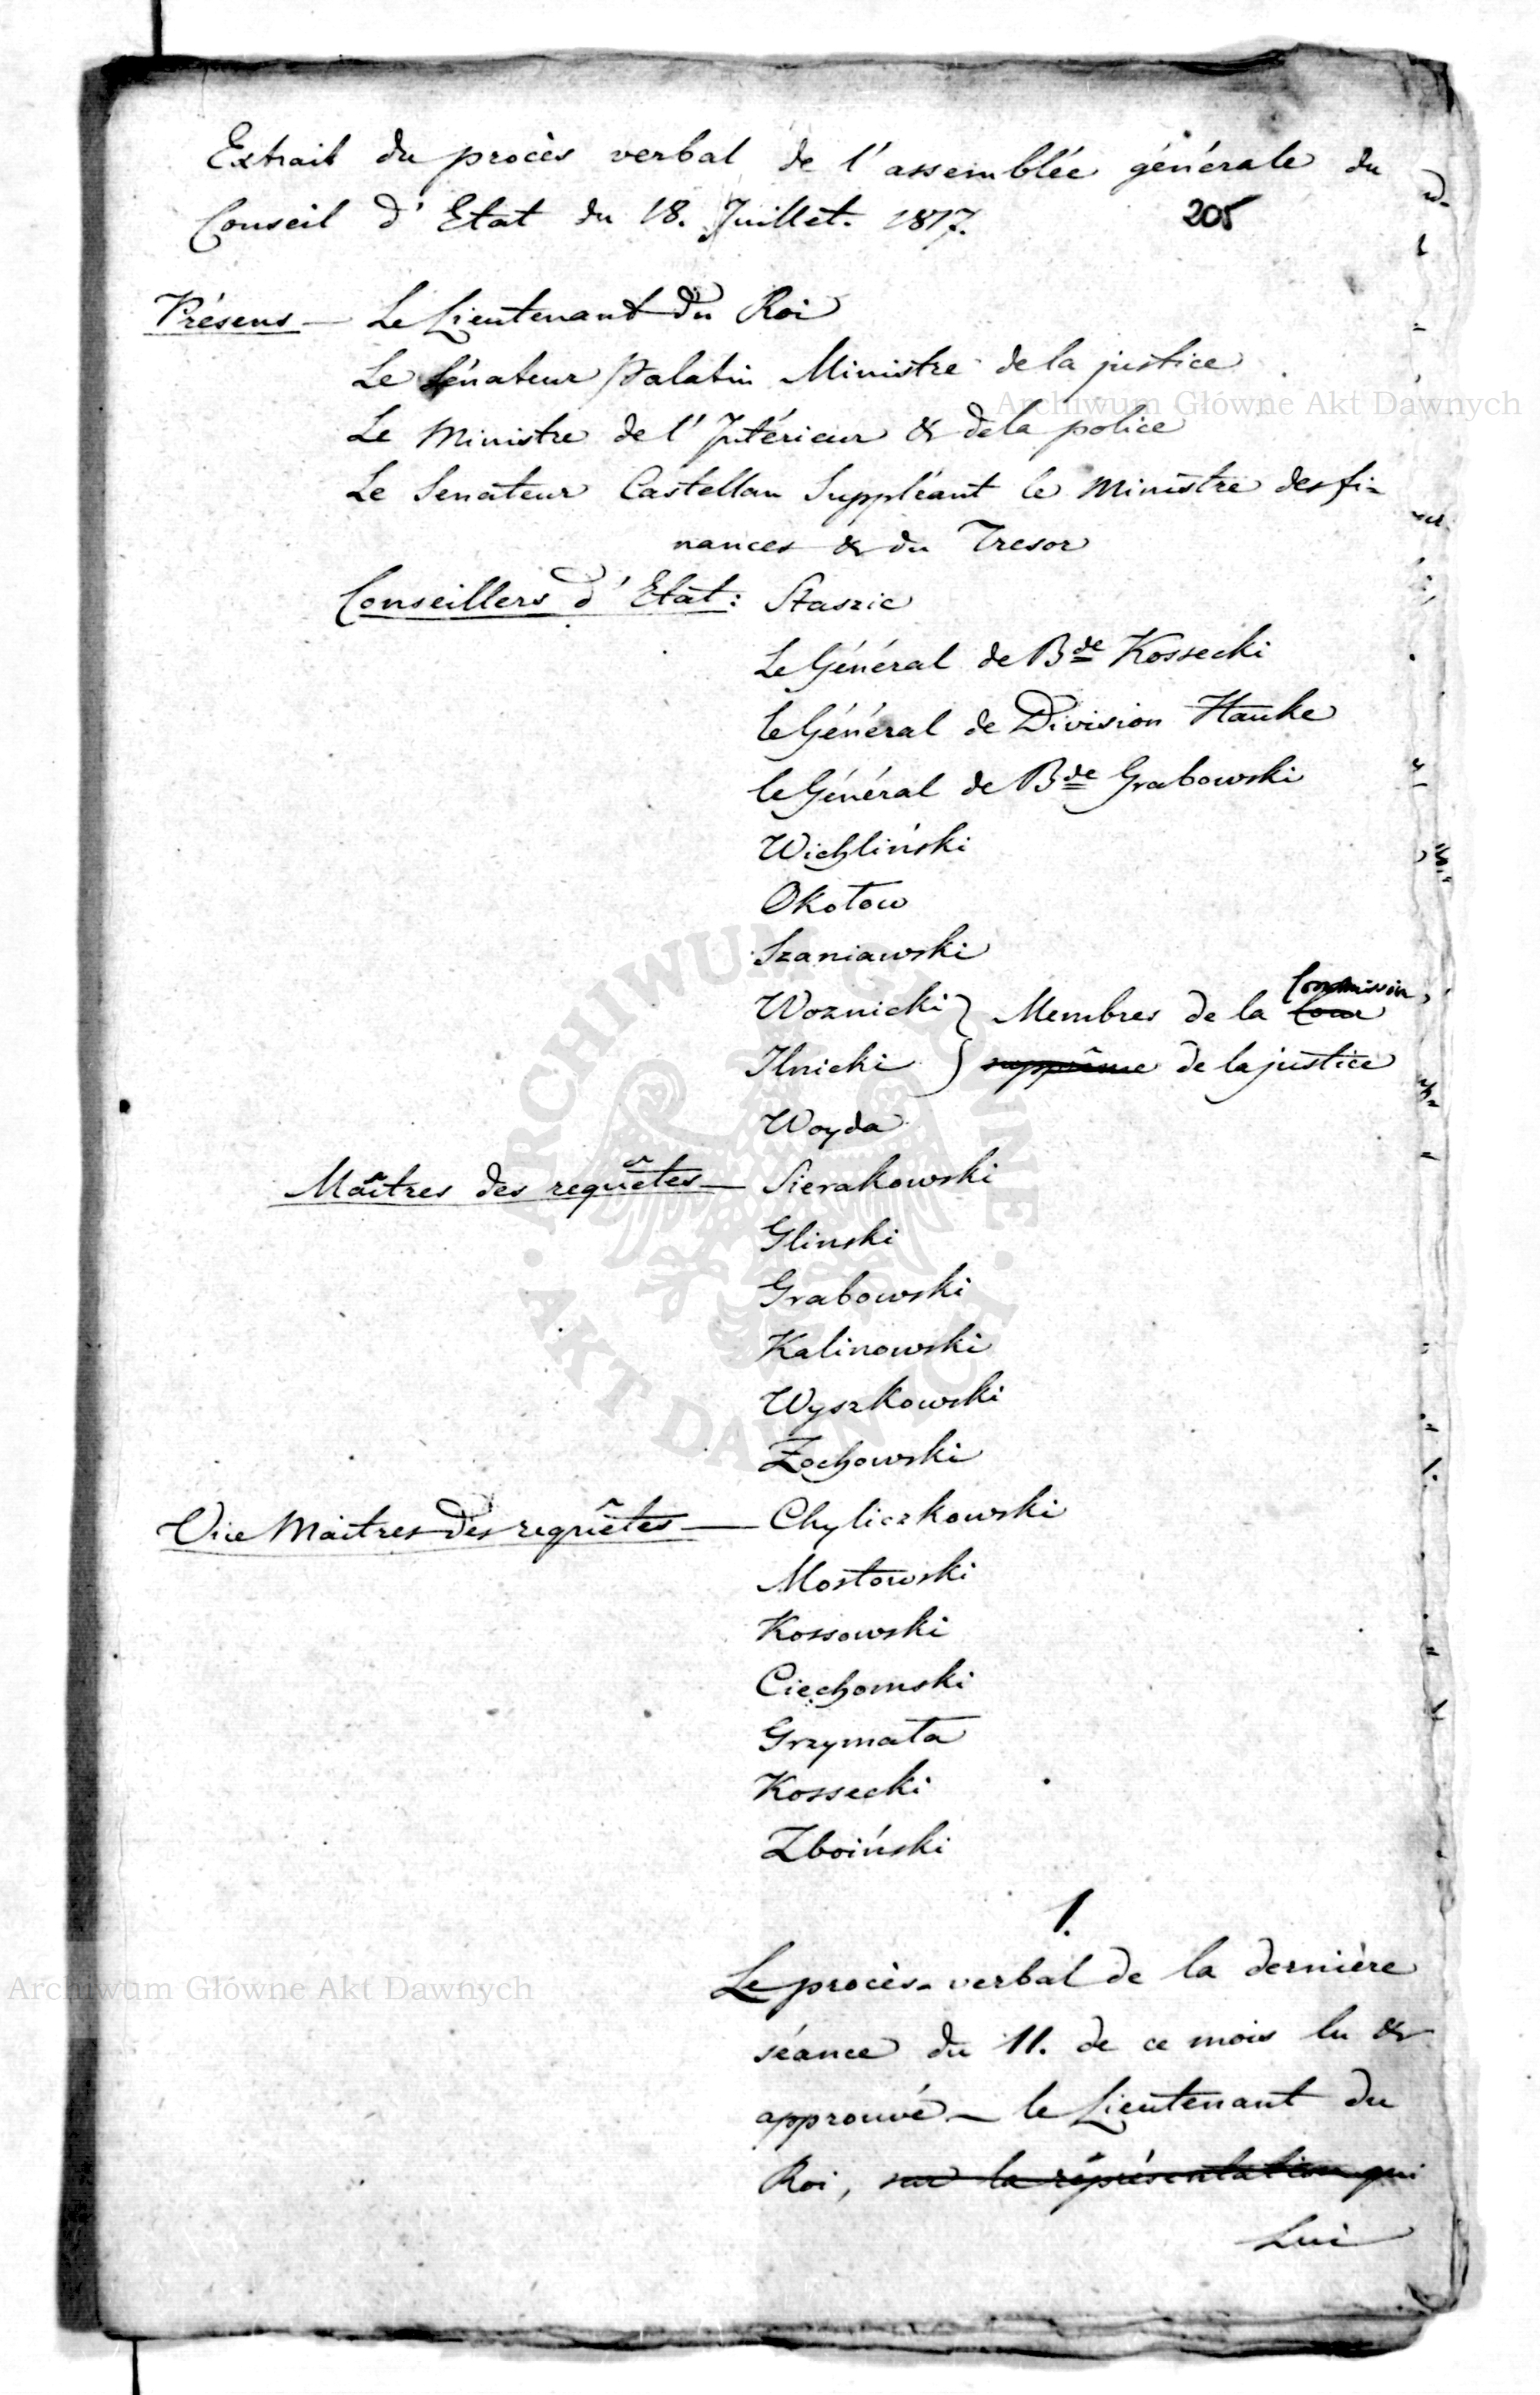 Extrait du procès verbal de l'assemblée générale du
Conseil d'Etat du 18. Juillet. 1817.
205
Présens — Le Lieutenant du Roi
Le Sénateur Palatin Ministre de la justice
Archiwum Główne Akt Dawnych
Le Ministre de l'Intérieur & de la police
Le Senateur Castellan Suppléant le Ministre des fi-
nances & du Tresor
Conseillers d'Etat: Staszic
Le Général de Bde Kossecki
le Général de Division Hauke
le Général de Bde Grabowski
Wichliński
Okołow
Szaniawski
Commission
Woznicki } Membres de la Cour
Ilnicki } supprême de la justice
Woyda
Maîtres des requêtes — Sierakowski
Glinski
Grabowski
Kalinowski
Wyszkowski
Żochowski
Vice Maitres des requêtes — Chyliczkowski
Mostowski
Kossowski
Ciechomski
Grzymała
Kossecki
Zboiński
ARCHIWUM GŁÓWNE AKT DAWNYCH
1.
Le procès-verbal de la dernière
Archiwum Główne Akt Dawnych
séance du 11. de ce mois lu &
approuvé — le Lieutenant du
Roi, sur la réprésentation qui
Lui